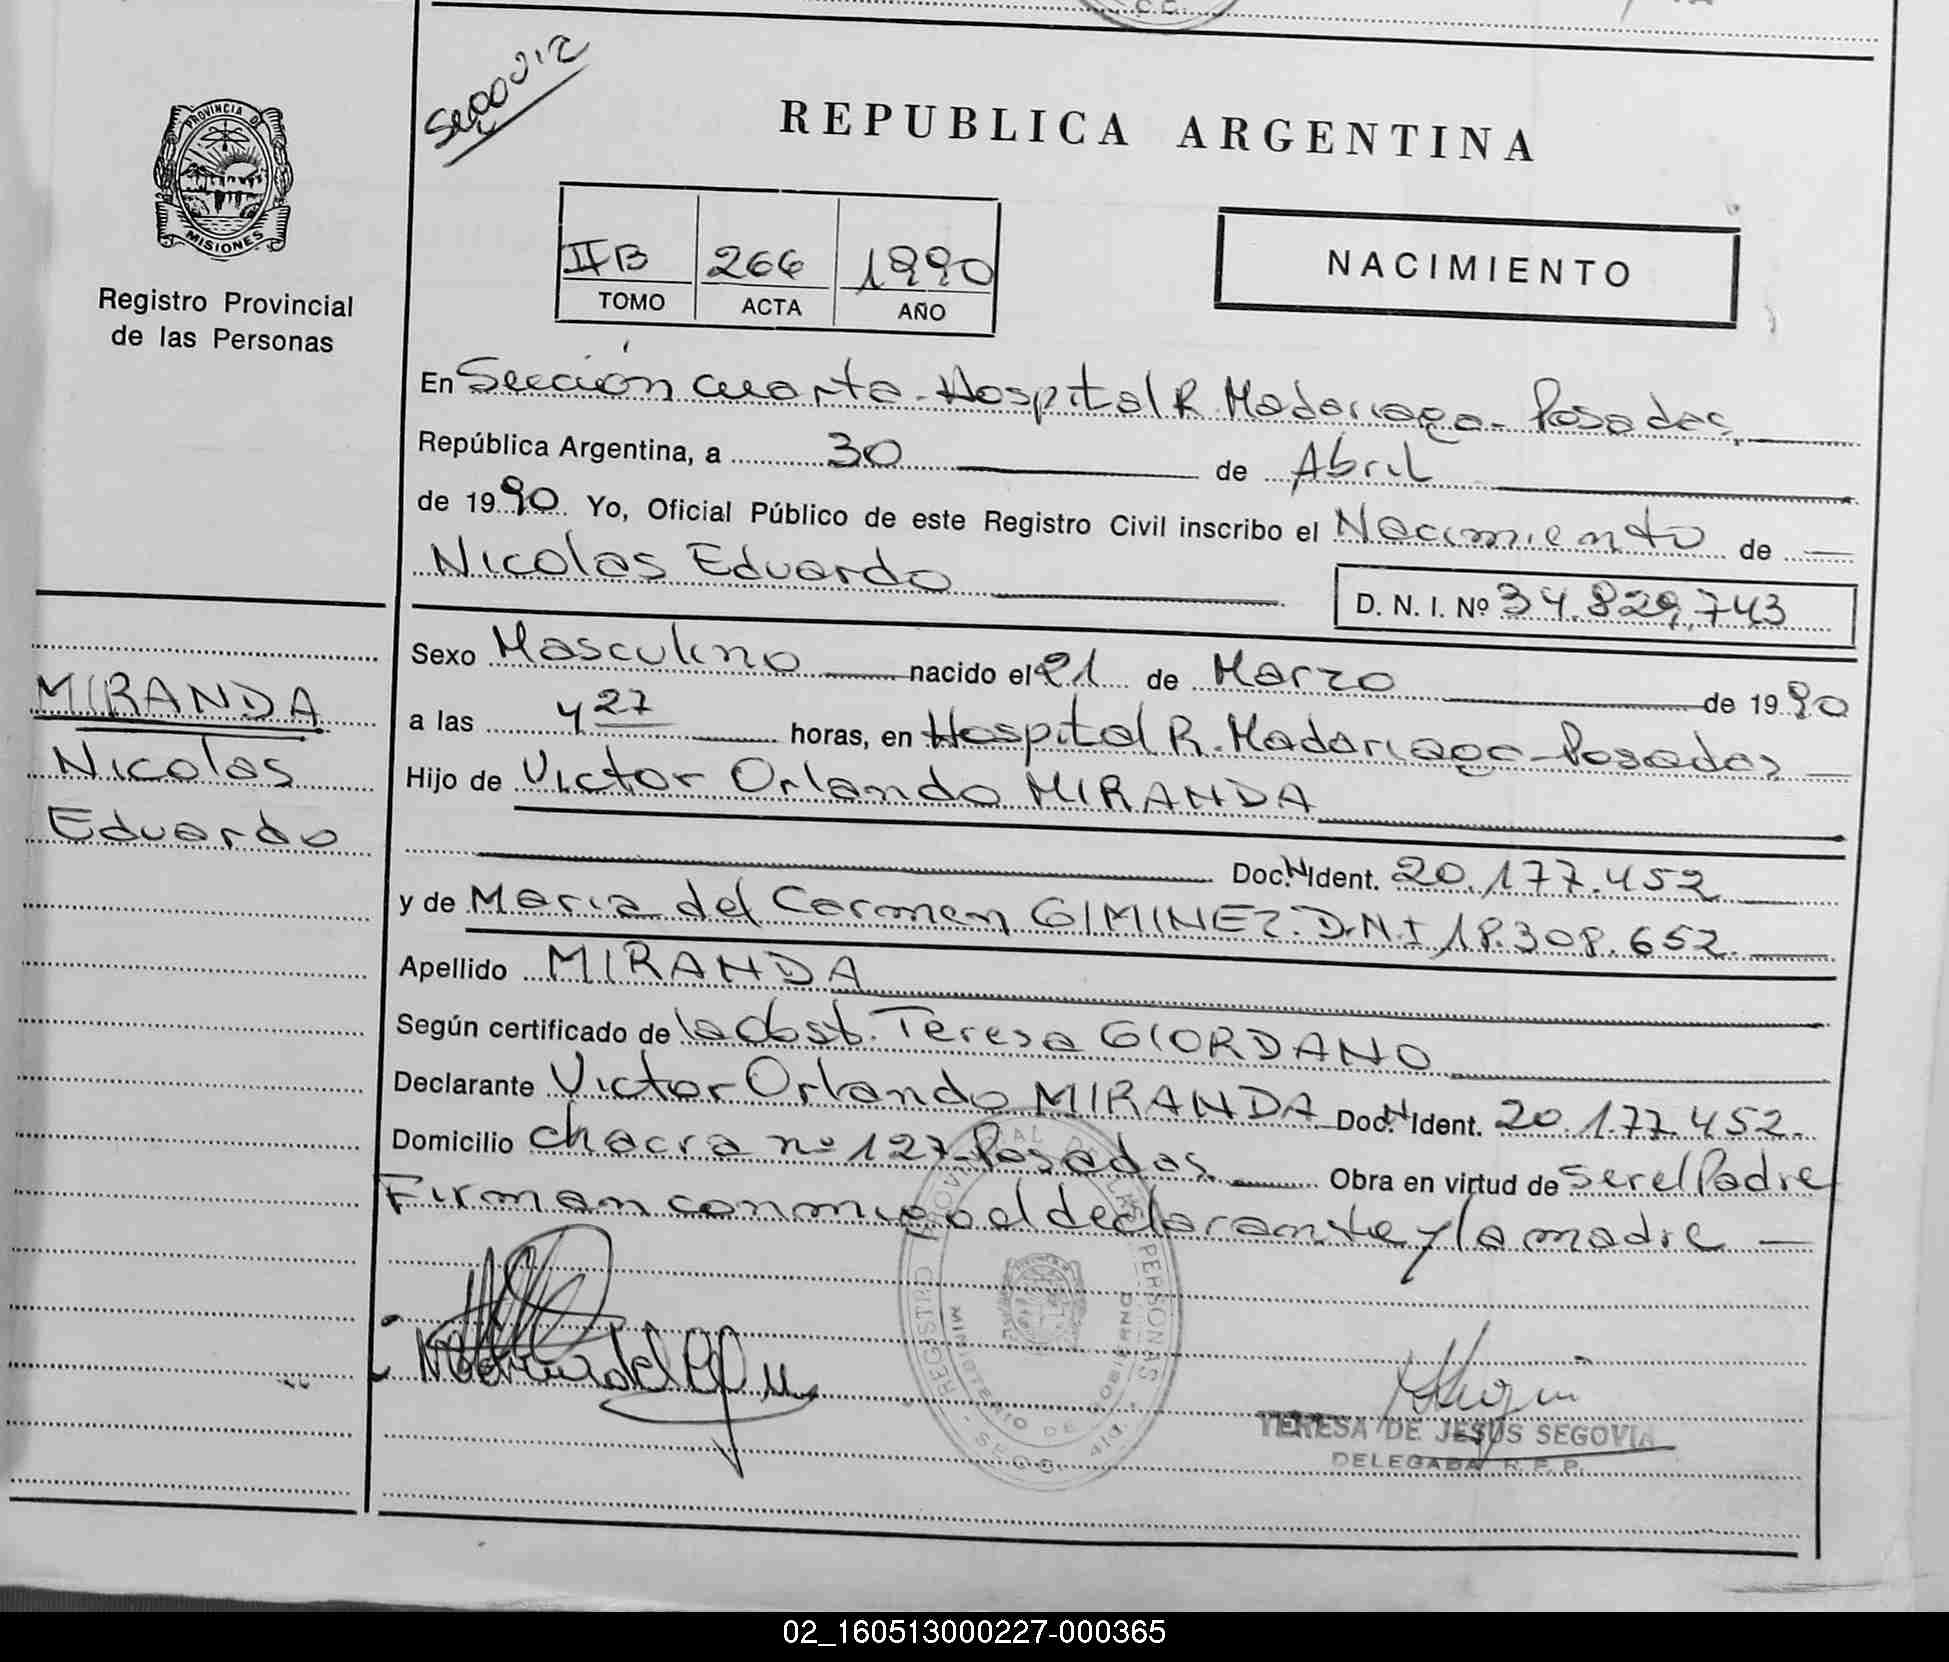 C.C.
Segovia
REPUBLICA ARGENTINA
PROVINCIA DE
MISIONES
Registro Provincial
de las Personas
IIB 266 1990
TOMO ACTA AÑO
NACIMIENTO
En Sección cuarta - Hospital R. Madariaga - Posadas,
República Argentina, a 30 de Abril
de 1990 Yo, Oficial Público de este Registro Civil inscribo el Nacimiento de
Nicolas Eduardo
D. N. I. Nº 34.829.743
Sexo Masculino nacido el 21 de Marzo de 1990
a las 4 27 horas, en Hospital R. Madariaga - Posadas
Hijo de Victor Orlando MIRANDA
Doc. N Ident. 20.177.452
y de Maria del Carmen GIMINEZ. D.N.I 18.308.652.
Apellido MIRANDA
Según certificado de la Obst. Teresa GIORDANO
Declarante Victor Orlando MIRANDA Doc. N Ident. 20.177.452.
Domicilio chacra nº 127 - Posadas. Obra en virtud de ser el Padre
Firman conmigo el declarante y la madre
MIRANDA
Nicolas
Eduardo
PERSONAS
MINISTERIO DE GOBIERNO
TERESA DE JESUS SEGOVIA
DELEGADA R.P.P.
02_160513000227-000365